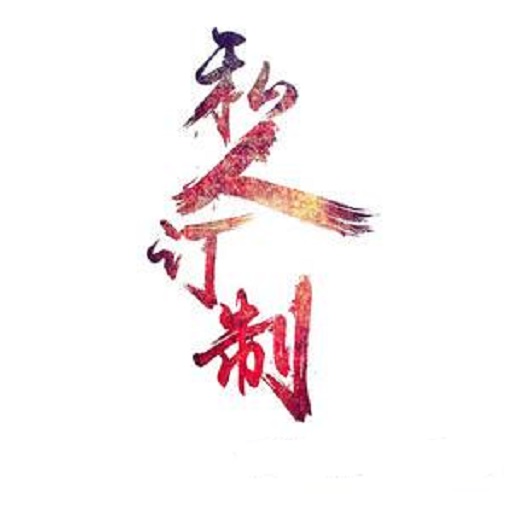 私人订制